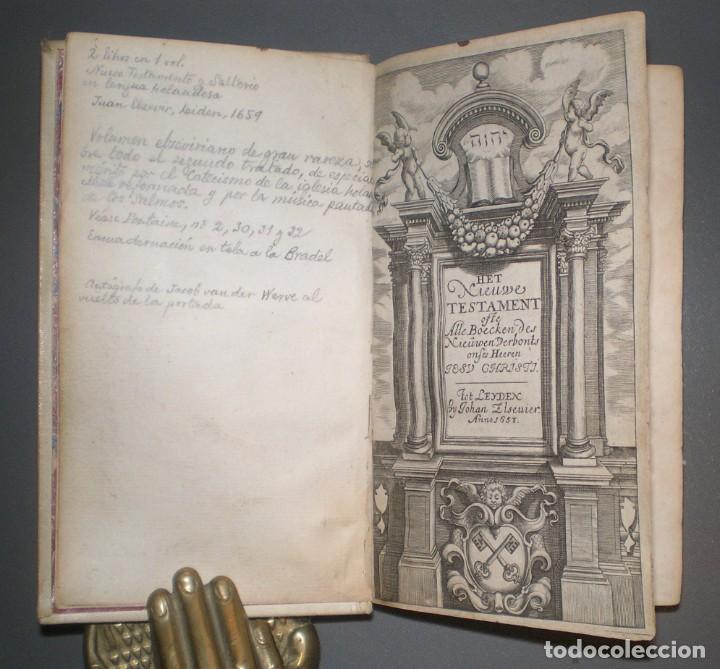 2 libros en 1 vol.
Nuevo Testamento y Salterio
en lengua holandesa
Juan Elzevir, Leiden, 1659
Volumen elzeviriano de gran rareza, so
bre todo el segundo tratado, de especial
mérito por el Catecismo de la iglesia holan
desa reformada y por la música pautada
de los Salmos.
Véase nº 2, 30, 31 y 22
Encuadernación en tela a la Bradel
Autógrafo de Jacob van der Werve al
vuelto de la portada
יהוה
HET
Nieuwe
TESTAMENT
ofte
Alle Boecken des
Nieuwen Verbonts
onses Heeren
JESV CHRISTI.
Tot LEYDEN
by Johan Elsevier.
Anno
todocoleccion